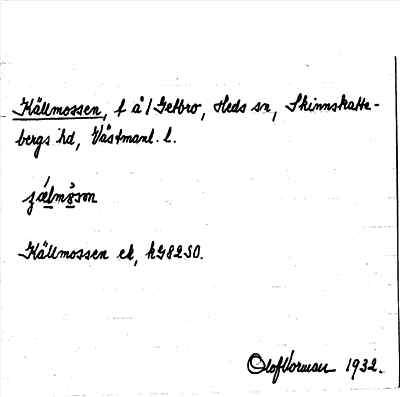 Källmossen, f å / Getbro, Heds sn, Skinnskatte-
bergs hd, Västmanl. l.
Källmossen ek, kG82SO.
Olof Vorman 1932.